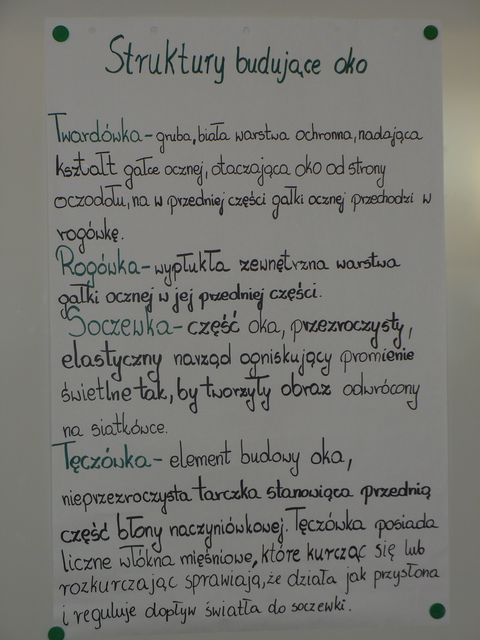 Struktury budujące oko
Twardówka - gruba, biała warstwa ochronna, nadająca
kształt gałce ocznej, otaczająca oko od strony
oczodołu, na w przedniej części gałki ocznej przechodzi w
rogówkę.
Rogówka - wypłukła zewnętrzna warstwa
gałki ocznej w jej przedniej części.
Soczewka - część oka, przezroczysty,
elastyczny narząd ogniskujący promienie
świetlne tak, by tworzyły obraz odwrócony
na siatkówce.
Tęczówka - element budowy oka,
nieprzezroczysta tarczka stanowiąca przednią
część błony naczyniówkowej. Tęczówka posiada
liczne włókna mięśniowe, które kurcząc się lub
rozkurczając sprawiają, że działa jak przysłona
i reguluje dopływ światła do soczewki.